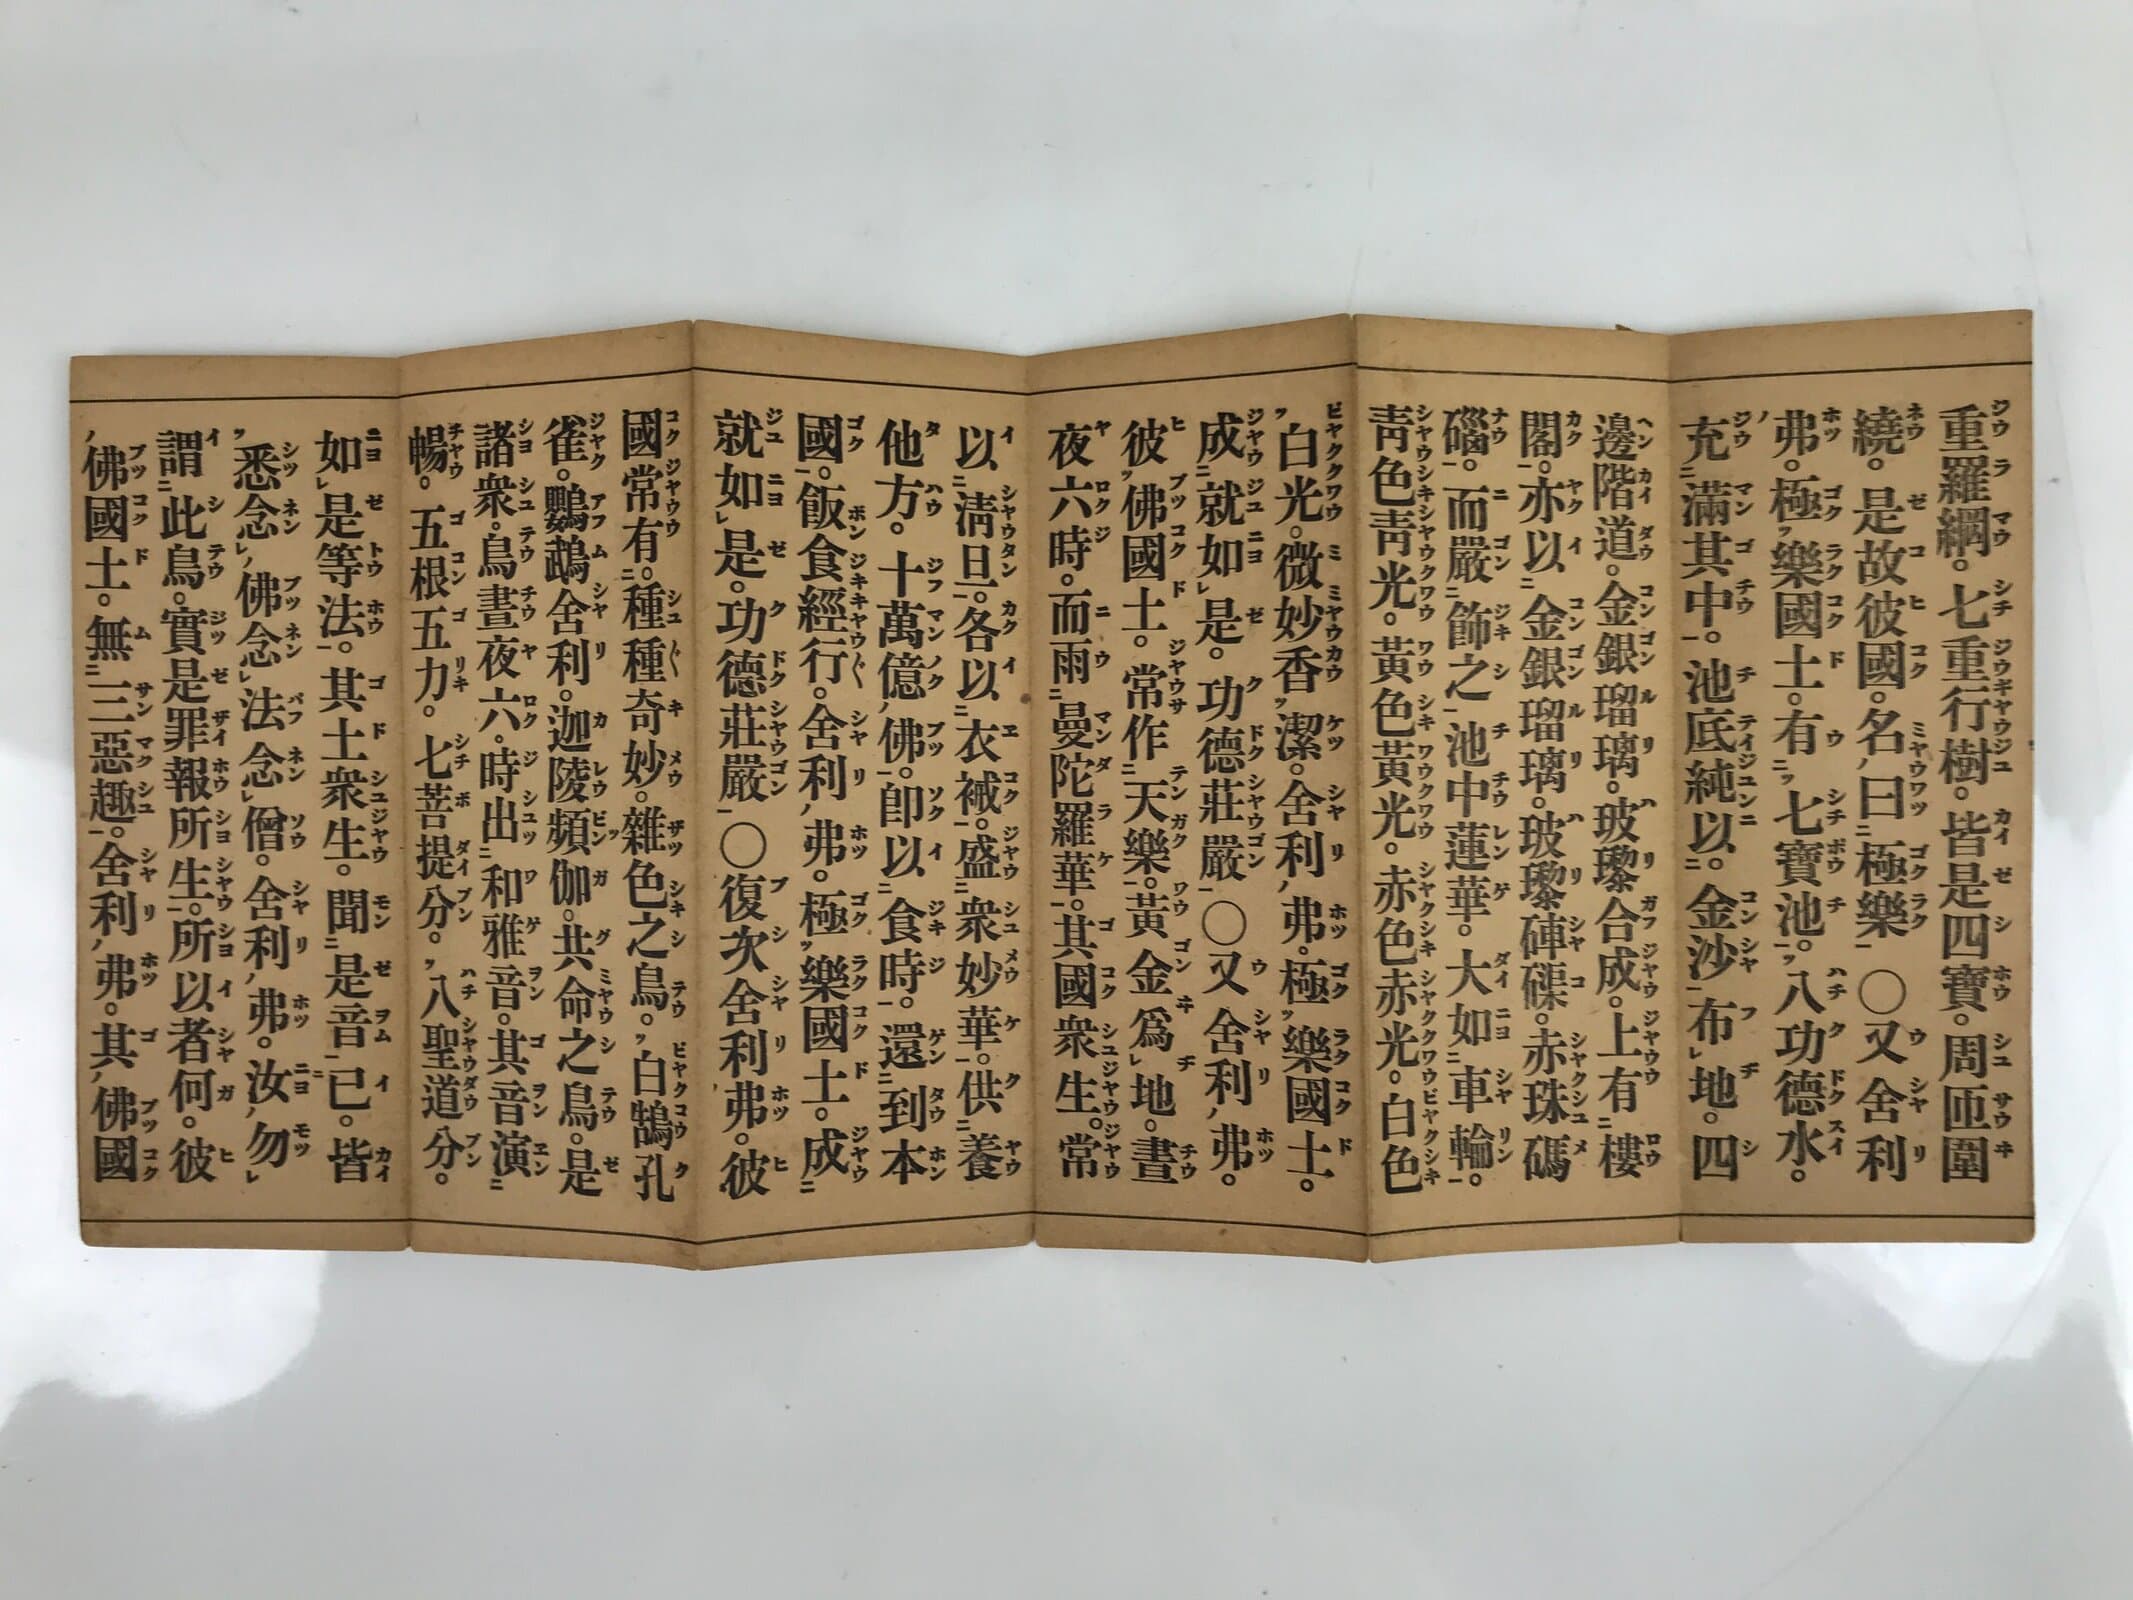 重羅網。七重行樹。皆是四寶。周匝圍
繞。是故彼國。名曰極樂 ○又舍利
弗。極樂國土。有七寶池。八功德水。
充滿其中。池底純以。金沙布地。四
邊階道。金銀瑠璃。玻瓈合成。上有樓
閣。亦以金銀瑠璃。玻瓈硨磲。赤珠碼
碯。而嚴飾之池中蓮華。大如車輪。
靑色靑光。黃色黃光。赤色赤光。白色
白光。微妙香潔。舍利弗。極樂國土。
成就如是。功德莊嚴 ○又舍利弗。
彼佛國土。常作天樂。黃金爲地。晝
夜六時。而雨曼陀羅華。其國衆生。常
以淸旦。各以衣裓。盛衆妙華。供養
他方。十萬億佛。卽以食時。還到本
國。飯食經行。舍利弗。極樂國土。成
就如是。功德莊嚴 ○復次舍利弗。彼
國常有。種種奇妙。雜色之鳥。白鵠孔
雀。鸚鵡舍利。迦陵頻伽。共命之鳥。是
諸衆。鳥晝夜六。時出和雅音。其音演
暢。五根五力。七菩提分。八聖道分。
如是等法。其土衆生。聞是音已。皆
悉念佛念法念僧。舍利弗。汝勿
謂此鳥。實是罪報所生。所以者何。彼
佛國土。無三惡趣。舍利弗。其佛國